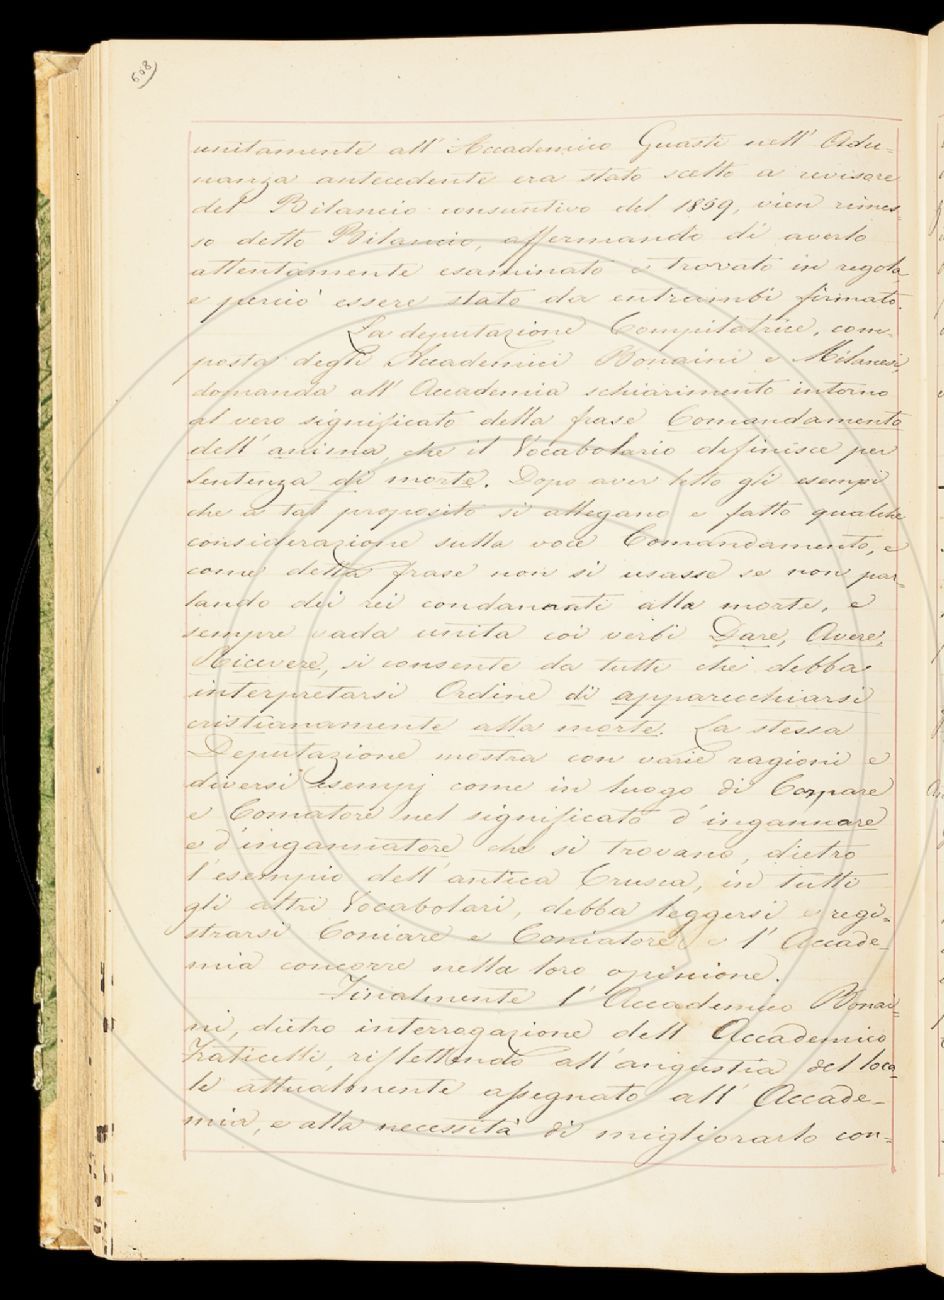 608)
unitamente all' Accademico Guasti nell' Adu-
nanza antecedente era stato scelto a revisore
del Bilancio consuntivo del 1859, vien rimes-
so detto Bilancio, affermando di averlo
attentamente esaminato e trovato in regola,
e perciò essere stato da entrambi firmato.
La deputazione Compilatrice, com-
posta degli Accademici Bonaini e Milanesi,
domanda all' Accademia schiarimento intorno
al vero significato della frase Comandamento
dell' anima, che il Vocabolario definisce per
Sentenza di morte. Dopo aver letto gli esempi
che a tal proposito si allegano e fatto qualche
considerazione sulla voce Comandamento, e
come detta frase non si usasse se non par-
lando dei rei condannati alla morte, e
sempre vada unita coi verbi Dare, Avere,
Ricevere, si consente da tutti che debba
interpretarsi Ordine di apparecchiarsi
cristianamente alla morte. La stessa
Deputazione mostra con varie ragioni e
diversi esempj come in luogo di Comare
e Comatore nel significato d'ingannare
e d'ingannatore che si trovano, dietro
l'esempio dell' antica Crusca, in tutti
gli altri Vocabolari, debba leggersi e regi-
strarsi Coniare e Coniatore e l' Accade-
mia concorre nella loro opinione.
Finalmente l' Accademico Bonai-
ni, dietro interrogazione dell Accademico
Fraticelli, riflettendo all'angustia del loca-
le attualmente assegnato all' Accade-
mia, e alla necessità di migliorarlo con-